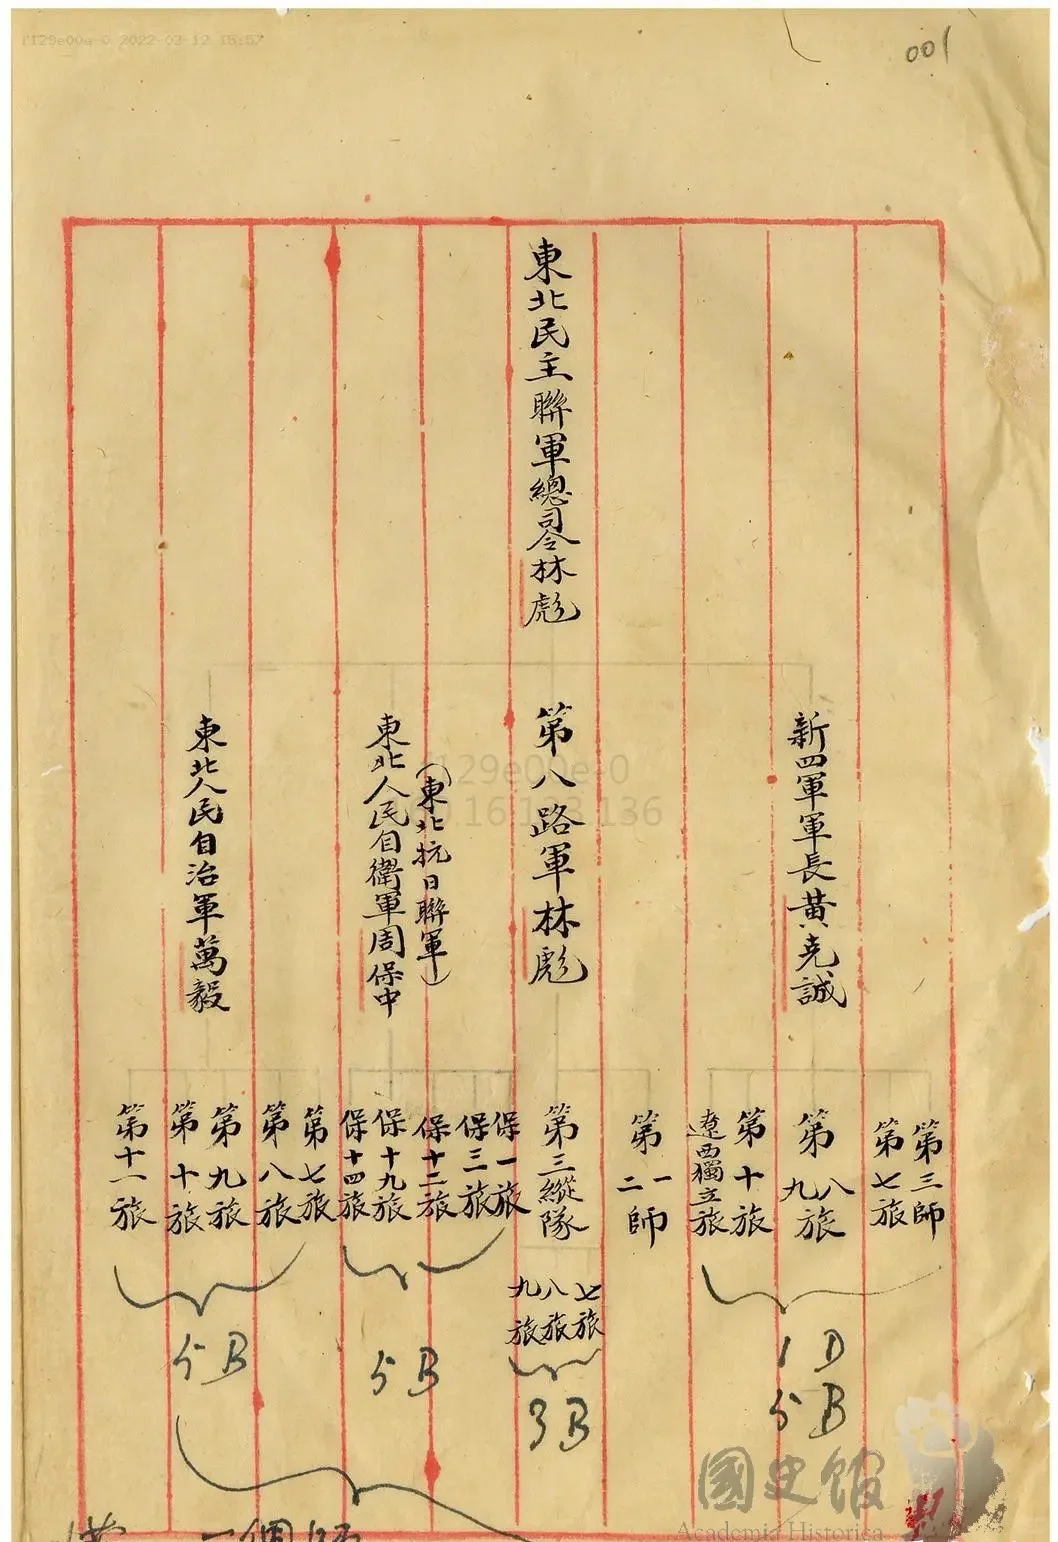 f129e00e-0 2022-03-12 15:57
001
東北民主聯軍總司令林彪
新四軍軍長黃克誠
第三師
第七旅
第八九旅
第十旅
遼西獨立旅
1D
5B
第八路軍林彪
第一二師
第三縱隊
七旅
八旅
九旅
3B
(東北抗日聯軍)
東北人民自衛軍周保中
保一旅
保三旅
保十二旅
保十九旅
保十四旅
5B
東北人民自治軍萬毅
第七旅
第八旅
第九旅
第十旅
第十一旅
5B
f129e00e-0
國史館
Academia Historica